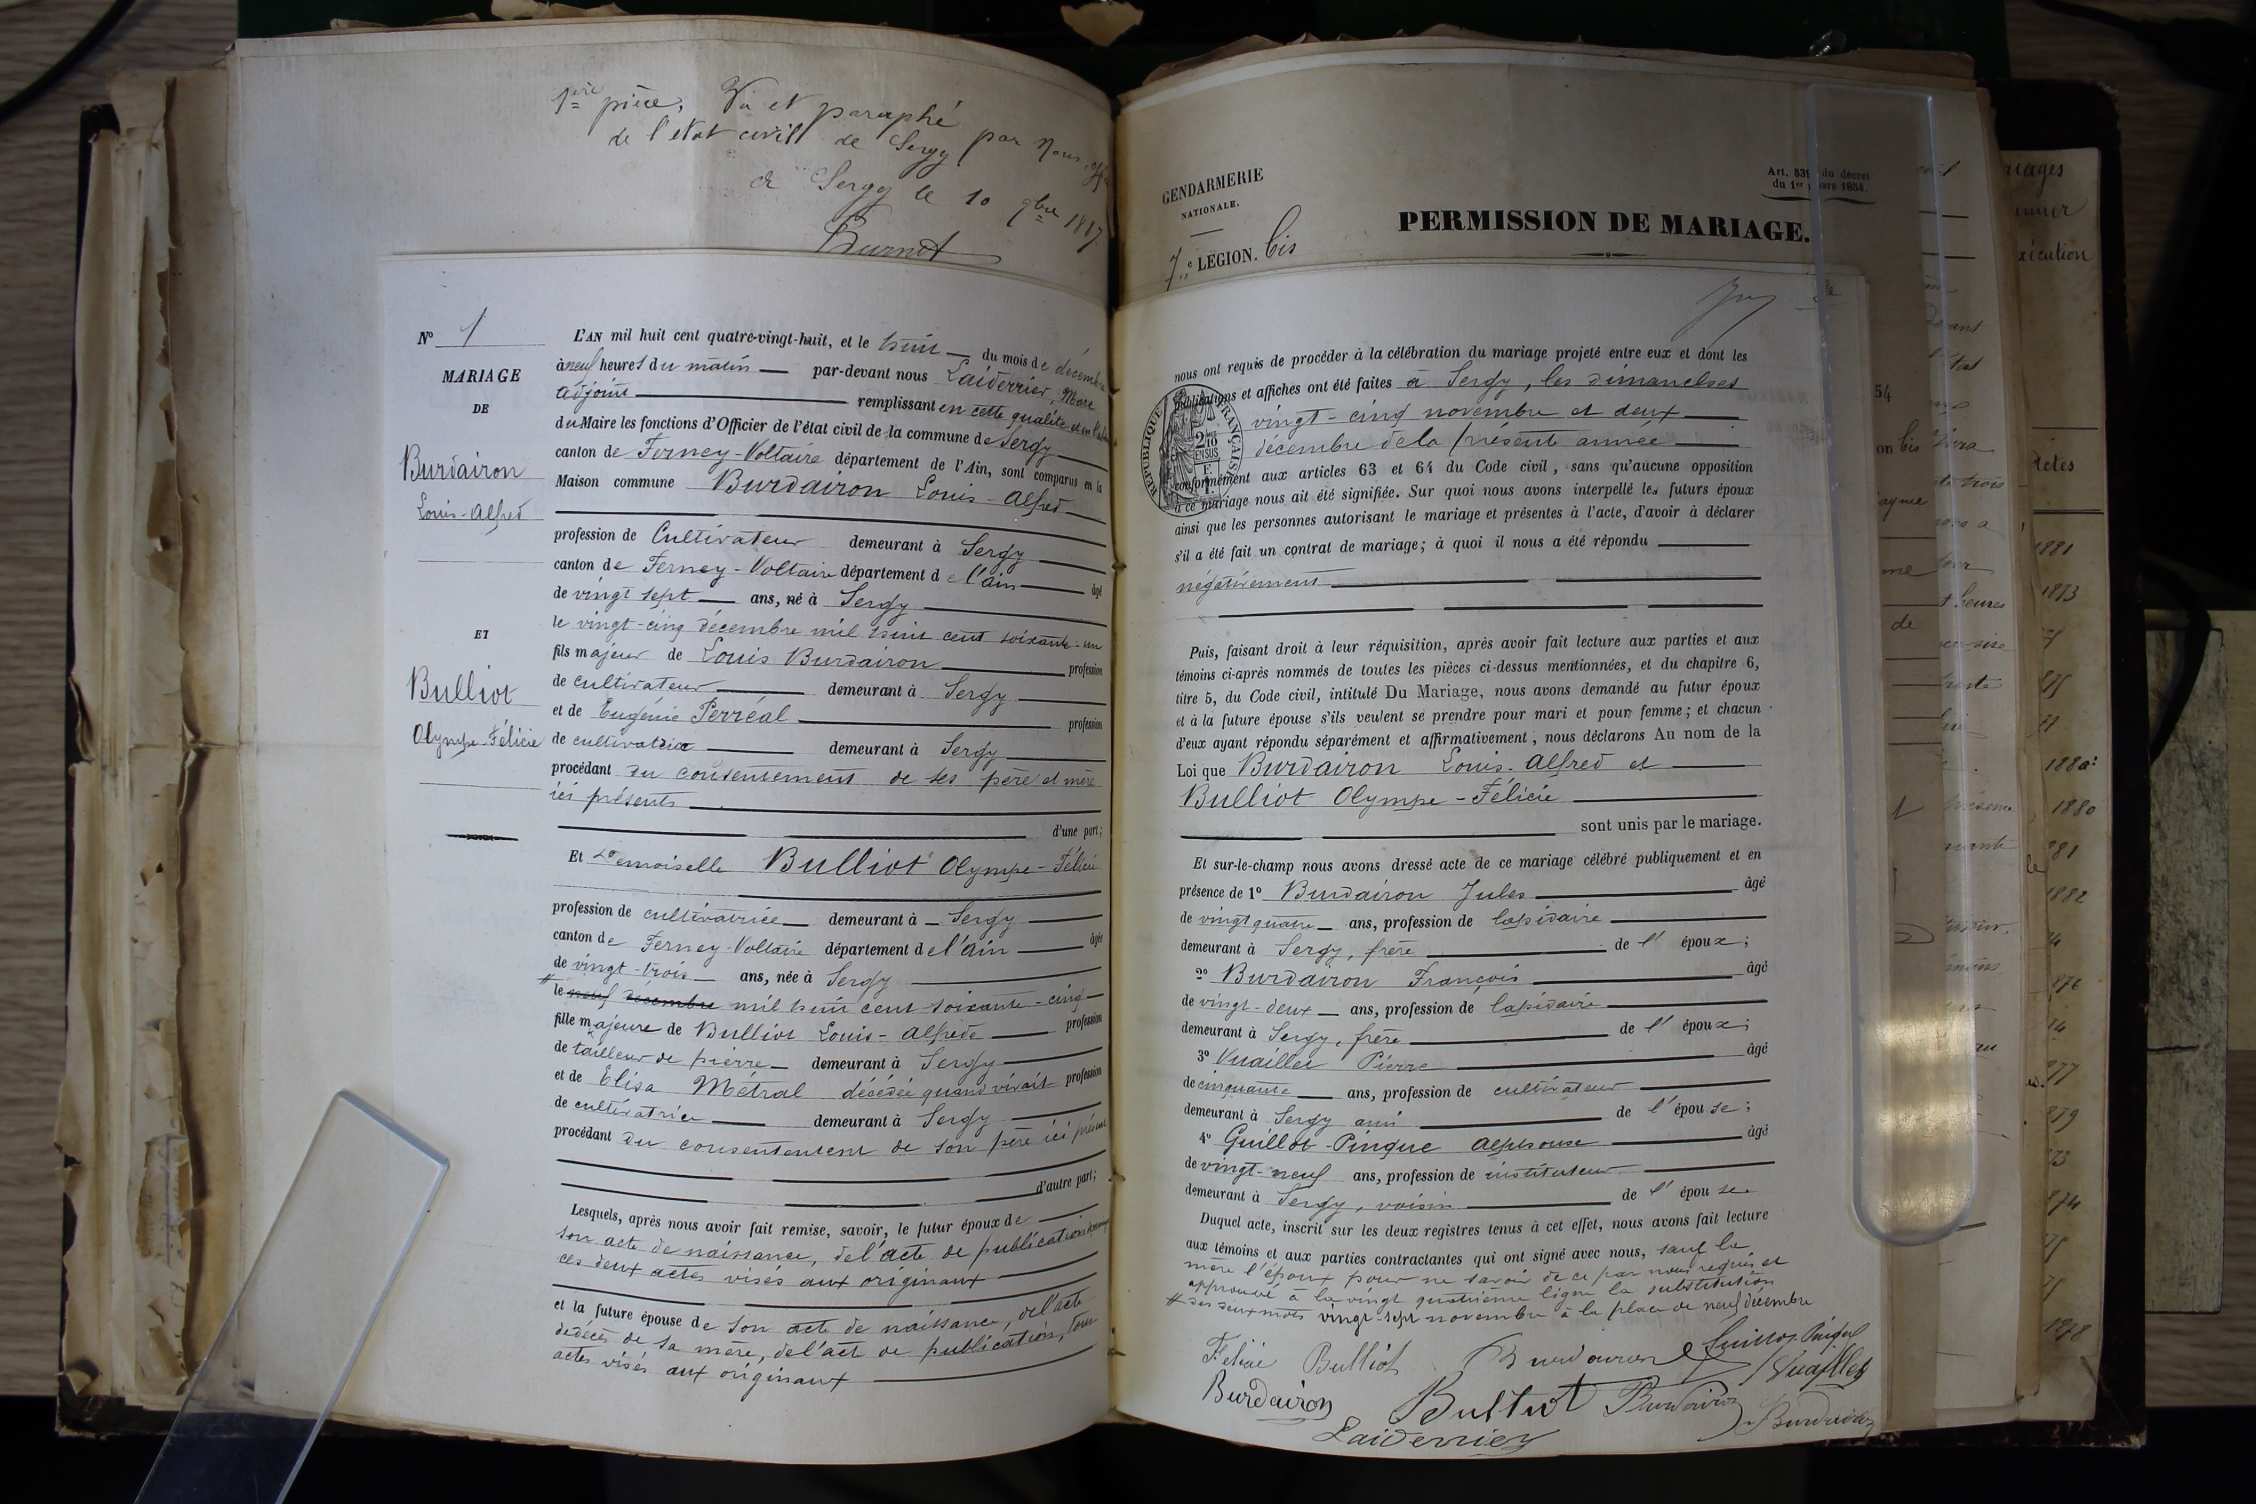 1ère pièce. Vu et paraphé par Nous
de l'état civil de Sergy
à Sergy le 10 9bre 1887
Burnot
N° 1
MARIAGE
DE
Burdairon
Louis-Alfred
ET
Bulliot
Olympe-Félicie
L'AN mil huit cent quatre-vingt-huit, et le huit du mois de décembre
à neuf heures du matin par-devant nous Laiderrier, Marc
adjoint remplissant en cette qualité et en
du Maire les fonctions d'Officier de l'état civil de la commune de Sergy
canton de Ferney-Voltaire département de l'Ain, sont comparus en la
Maison commune Burdairon Louis-Alfred
profession de Cultivateur demeurant à Sergy
canton de Ferney-Voltaire département de l'ain âgé
de vingt sept ans, né à Sergy
le vingt-cinq décembre mil huit cent soixante-un
fils majeur de Louis Burdairon profession
de cultivateur demeurant à Sergy
et de Eugénie Perréal profession
de cultivatrice demeurant à Sergy
procédant du consentement de ses père et mère
ici présents
d'une part;
Et Demoiselle Bulliot Olympe-Félicie
profession de cultivatrice demeurant à Sergy
canton de Ferney-Voltaire département de l'ain âgée
de vingt-trois ans, née à Sergy
# le neuf décembre mil huit cent soixante-cinq
fille majeure de Bulliot Louis-Alfrede profession
de tailleur de pierre demeurant à Sergy
et de Elisa Métral décédée quand vivait profession
de cultivatrice demeurant à Sergy
procédant du consentement de son père ici présent
d'autre part;
Lesquels, après nous avoir fait remise, savoir, le futur époux de
son acte de naissance, de l'acte de publication
ces deux actes visés aux originaux
et la future épouse de son acte de naissance, de l'acte
de décès de sa mère, de l'acte de publication, tous
actes visés aux originaux
GENDARMERIE
NATIONALE.
7e LÉGION. bis
Art. 539 du décret
du 1er mars 1854.
PERMISSION DE MARIAGE.
nous ont requis de procéder à la célébration du mariage projeté entre eux et dont les
publications et affiches ont été faites à Sergy, les dimanches
vingt-cinq novembre et deux
décembre de la présente année
conformément aux articles 63 et 64 du Code civil, sans qu'aucune opposition
à ce mariage nous ait été signifiée. Sur quoi nous avons interpellé les futurs époux
ainsi que les personnes autorisant le mariage et présentes à l'acte, d'avoir à déclarer
s'il a été fait un contrat de mariage; à quoi il nous a été répondu
négativement
RÉPUBLIQUE FRANÇAISE
Puis, faisant droit à leur réquisition, après avoir fait lecture aux parties et aux
témoins ci-après nommés de toutes les pièces ci-dessus mentionnées, et du chapitre 6,
titre 5, du Code civil, intitulé Du Mariage, nous avons demandé au futur époux
et à la future épouse s'ils veulent se prendre pour mari et pour femme; et chacun
d'eux ayant répondu séparément et affirmativement, nous déclarons Au nom de la
Loi que Burdairon Louis-Alfred et
Bulliot Olympe-Félicie
sont unis par le mariage.
Et sur-le-champ nous avons dressé acte de ce mariage célébré publiquement et en
présence de 1° Burdairon Jules âgé
de vingt quatre ans, profession de lapidaire
demeurant à Sergy, frère de l'époux;
2° Burdairon François âgé
de vingt-deux ans, profession de lapidaire
demeurant à Sergy, frère de l'époux;
3° Vuaillet Pierre âgé
de cinquante ans, profession de cultivateur
demeurant à Sergy ami de l'épouse;
4° Guillot-Pingue Alphonse âgé
de vingt-neuf ans, profession de instituteur
demeurant à Sergy, voisin de l'épouse
Duquel acte, inscrit sur les deux registres tenus à cet effet, nous avons fait lecture
aux témoins et aux parties contractantes qui ont signé avec nous, sauf la
mère l'époux pour ne savoir de ce par nous requis et
approuvé à la vingt quatrième ligne la substitution
# des deux mots vingt-sept novembre à la place de neuf décembre
Félicie Bulliot Burdairon Guillot-Pingue
Burdairon Bulliot Burdairon Vuaillet
Laiderrier Burdairon